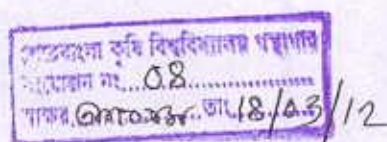 শেরেবাংলা কৃষি বিশ্ববিদ্যালয় গন্থাগার
সংযোজন নং...08
স্বাক্ষর তাং 18/03/12